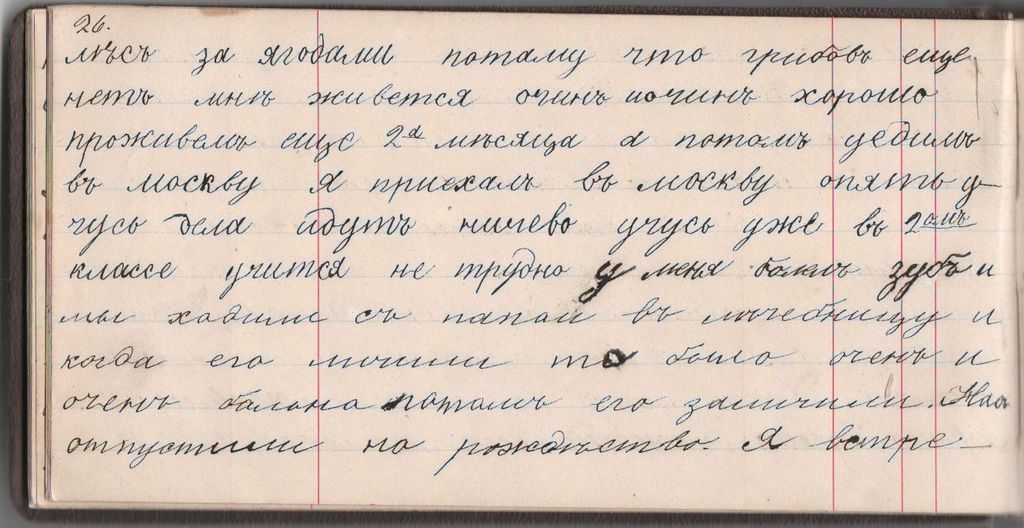 26.
лѣсъ за ягодами потаму что грибовъ еще
нетъ мнѣ живется очинь иочинь хорошо
проживемъ еще 2а мѣсяца а потомъ уедимъ
въ москву я приехалъ въ москву опять у-
чусь дела идутъ ничево учусь уже въ 2омъ
классе учится не трудно у меня балелъ зубъ и
мы хадили съ папай въ лѣчебницу и
когда его личили то было очень и
очень бальна патамъ его заличили. Нас
отпустили на рождѣство. Я встре-